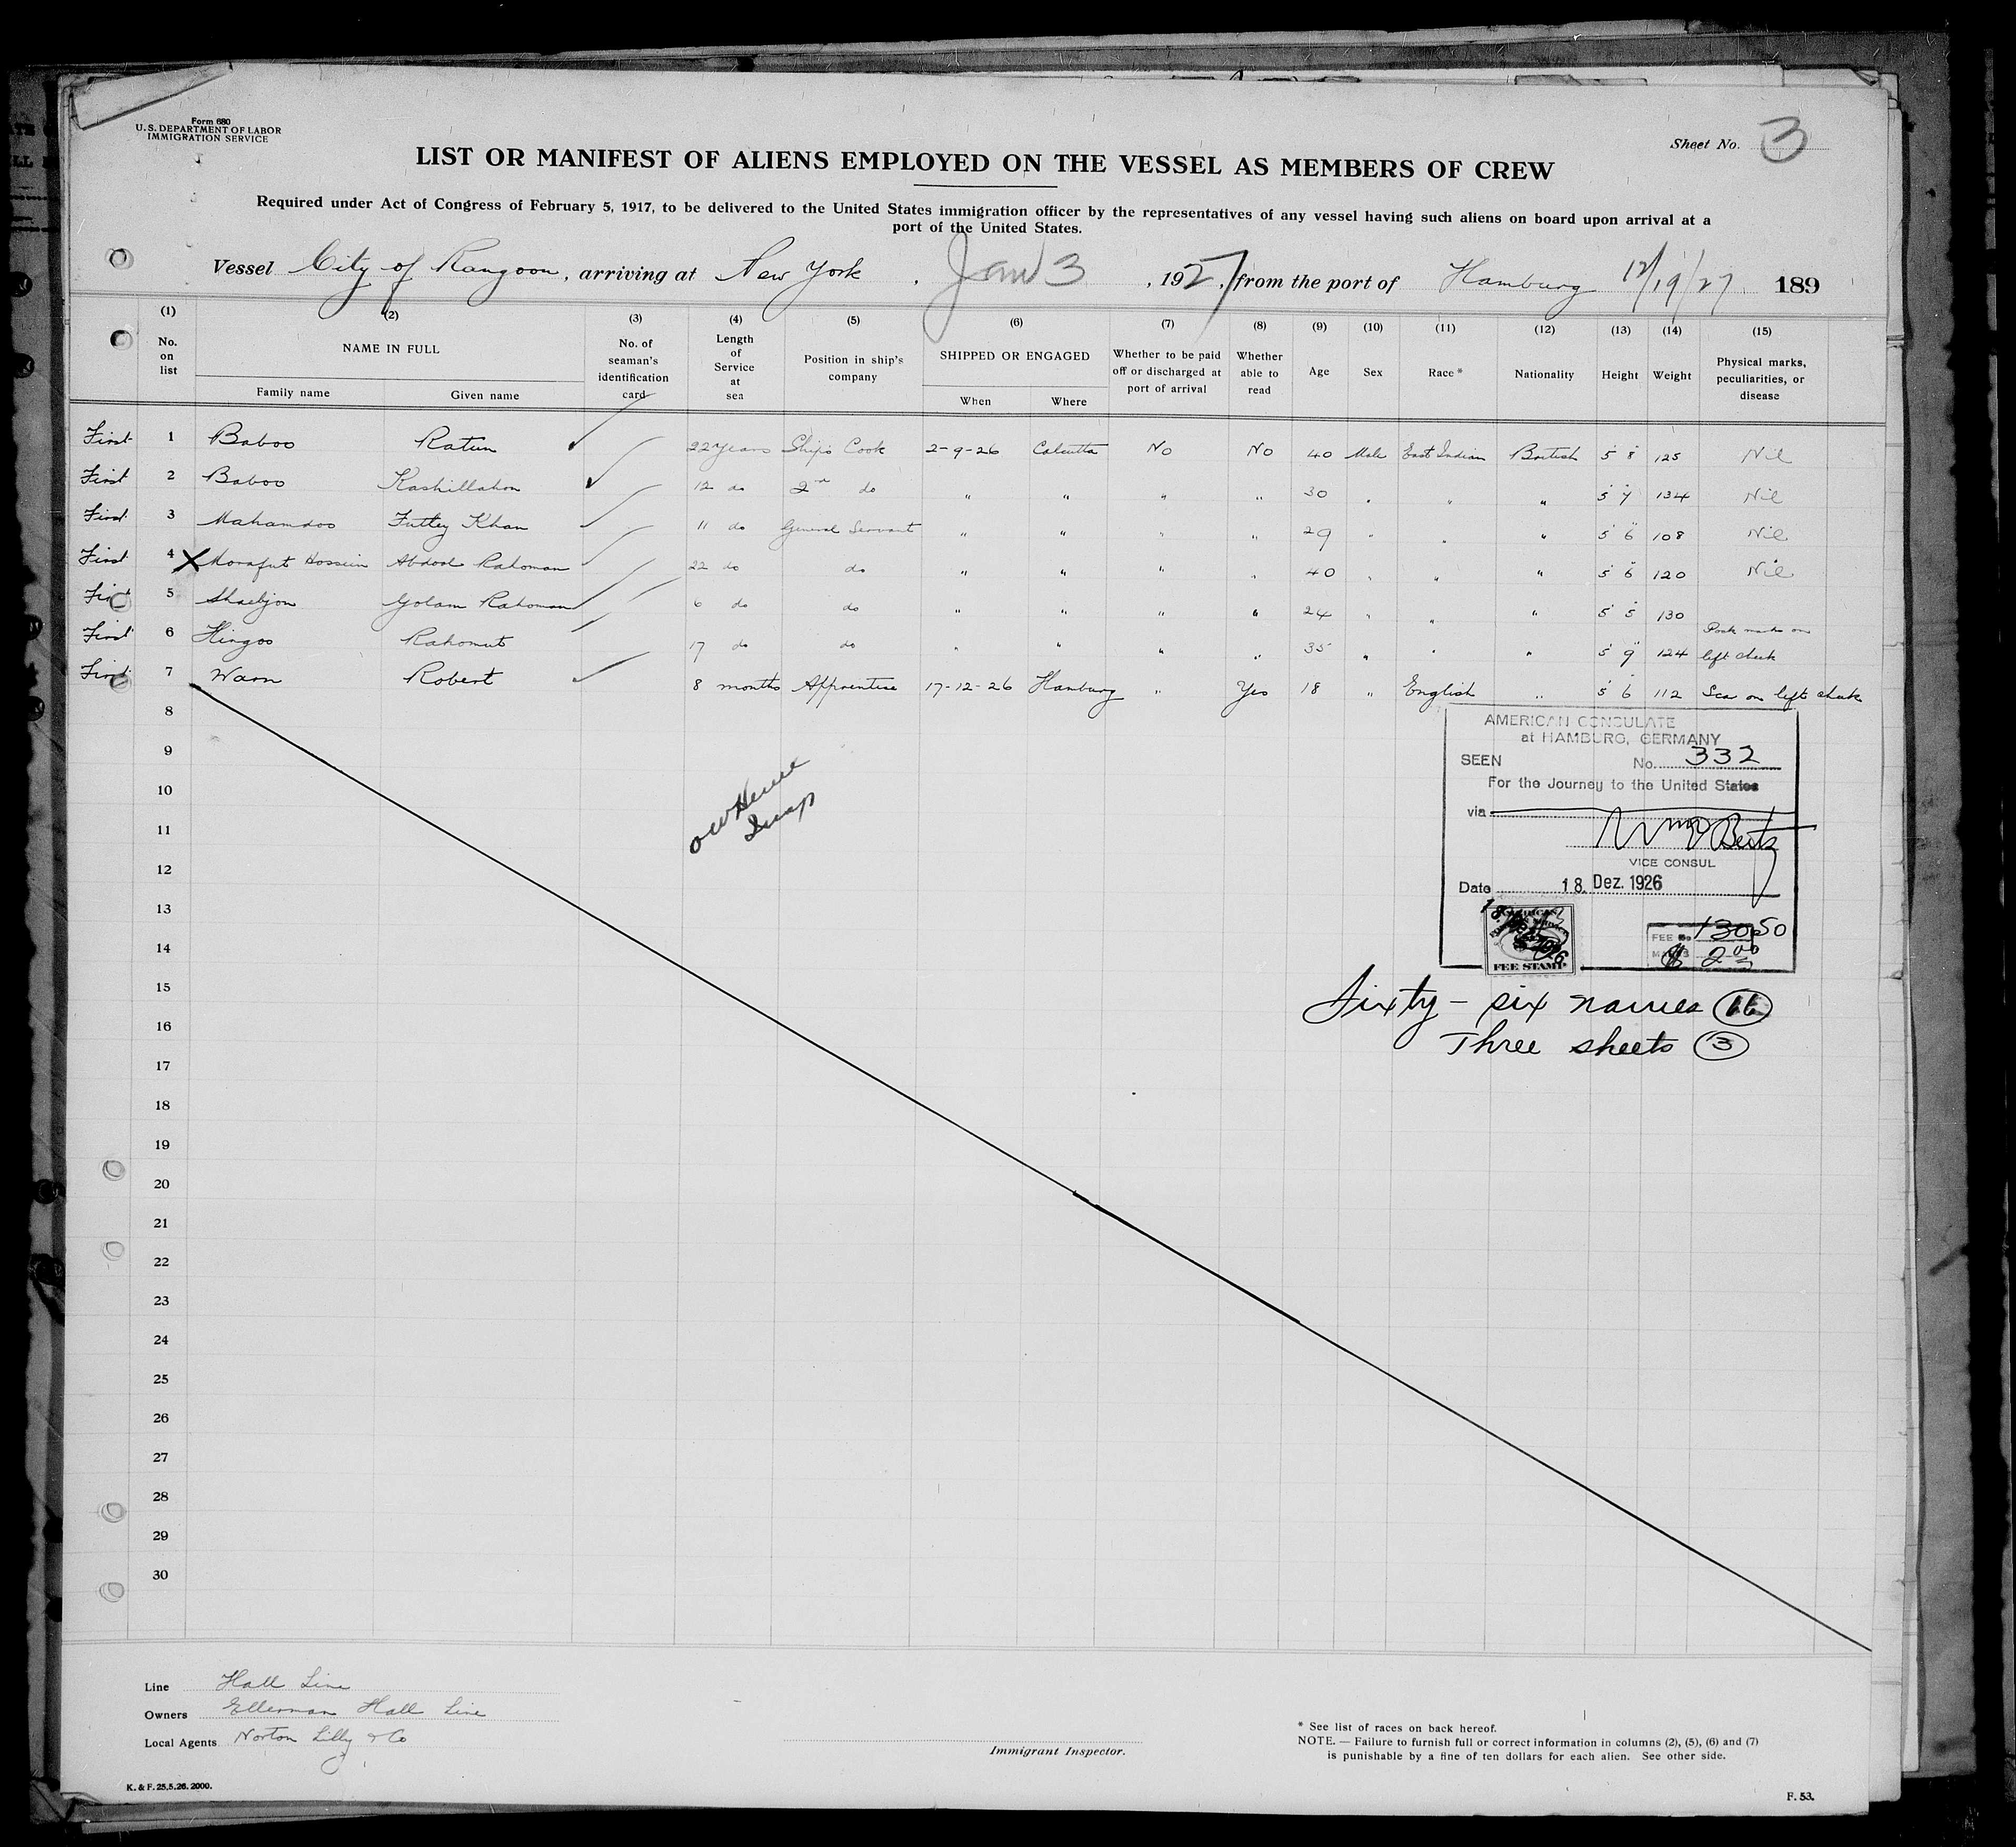 Form 680
U.S. DEPARTMENT OF LABOR
IMMIGRATION SERVICE
Sheet No. 3
LIST OR MANIFEST OF ALIENS EMPLOYED ON THE VESSEL AS MEMBERS OF CREW
Required under Act of Congress of February 5, 1917, to be delivered to the United States immigration officer by the representatives of any vessel having such aliens on board upon arrival at a
port of the United States.
Vessel City of Rangoon, arriving at New York, Jan 3, 1927, from the port of Hamburg 12/19/27 189
(1) (2) (3) (4) (5) (6) (7) (8) (9) (10) (11) (12) (13) (14) (15)
No. on list NAME IN FULL Family name Given name No. of seaman's identification card Length of Service at sea Position in ship's company SHIPPED OR ENGAGED When Where Whether to be paid off or discharged at port of arrival Whether able to read Age Sex Race * Nationality Height Weight Physical marks, peculiarities, or disease
First 1 Baboo Ratun 22 years Ships Cook 2-9-26 Calcutta No No 40 Male East Indian British 5 8 125 Nil
First 2 Baboo Kashillahon 12 do 2nd do " " " " 30 " " " 5 7 134 Nil
First 3 Mahamdoo Futtey Khan 11 do General Servant " " " " 29 " " " 5 6 108 Nil
First 4 X Hossein Abdool Rahoman 22 do do " " " " 40 " " " 5 6 120 Nil
First 5 Golam Rahoman 6 do do " " " " 24 " " " 5 5 130
First 6 Hingoo Rahomut 17 do do " " " " 35 " " " 5 9 124 Pock marks on left cheek
First 7 Warn Robert 8 months Apprentice 17-12-26 Hamburg " Yes 18 " English " 5 6 112 Sca on left cheek
8
9
10
11
12
13
14
15
16
17
18
19
20
21
22
23
24
25
26
27
28
29
30
AMERICAN CONSULATE
at HAMBURG, GERMANY
SEEN No. 332
For the Journey to the United States
via
VICE CONSUL
Date 18. Dez. 1926
FEE No 13050
$ 2.00
FEE STAMP
Sixty-six names 66
Three sheets 3
Line Hall Line
Owners Ellerman Hall Line
Local Agents Norton Lilly & Co
Immigrant Inspector.
* See list of races on back hereof.
NOTE. — Failure to furnish full or correct information in columns (2), (5), (6) and (7)
is punishable by a fine of ten dollars for each alien. See other side.
K. & F. 25.5.26. 2000.
F. 53.